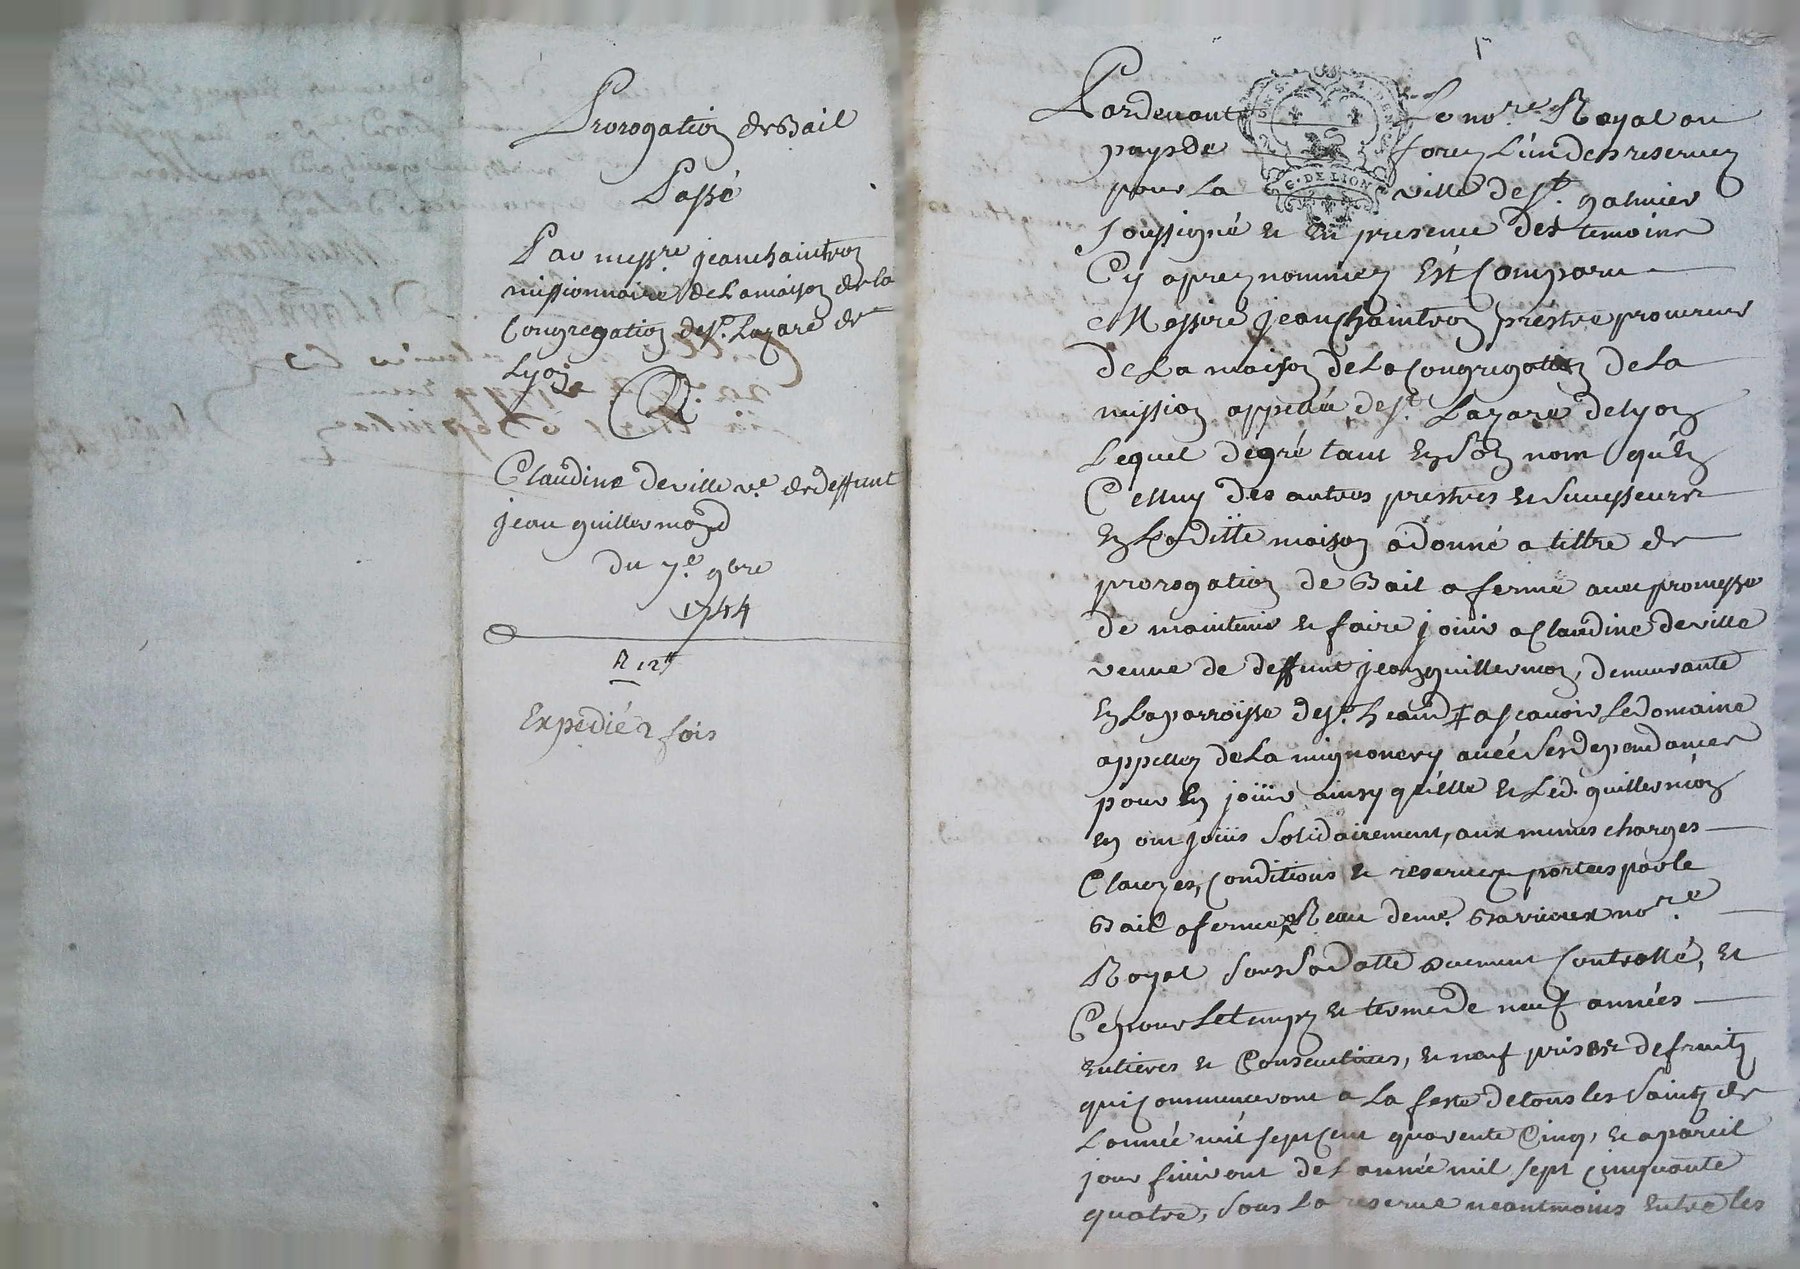 Prorogation de Bail
Passé
Par messre jean chaintron
missionnaire de La maison de la
Congregation de St. Lazare de
Lyon
A
Claudine deville ve. de deffunt
jean guillermond
du 7e. 9bre
1744
R 12tt
Expedié 2 fois
1r
Pardevant Le nore. Royal au
pays de forez L'un des reservez
pour La ville de St. galmier
soussigné et En presence des temoins
Cy aprez nommez Est Comparu
Messire jean Chaintron prestre procureur
de La maison de La Congregation de La
mission appellée de St. Lazare de Lyon
Lequel de gré tant En Son nom qu'En
Celluy des autres prestres et Successeurs
En Laditte maison a donné a tiltre de
prorogation de Bail a ferme avec promesse
de maintenir et faire joüir a Claudine deville
veuve de deffunt jean guillermon, demeurante
En La parroisse de St. heand # a scavoir Le domaine
appellez de La mignonery avéc Ses dependances
pour En joüir ainsy qu'elle et Led. guillermon
En ont joüis Solidairement, aux mêmes charges
Clauzes, Conditions et reservez portées par le
Bail a ferme Receu de me. Barrieux nore.
Royal Sous Sa datte duement Controllé, Et
Ce pour Le temps et terme de neuf années
Entieres et Consecutives, et neuf prises de fruitz
qui Commenceront a La feste de tous les Saintz de
L'année mil sept Cent quarente Cinq, et a pareil
jour finiront de L'année mil sept Cinquante
quatre, Sous La reserve neantmoins Entre les
G. DE LION